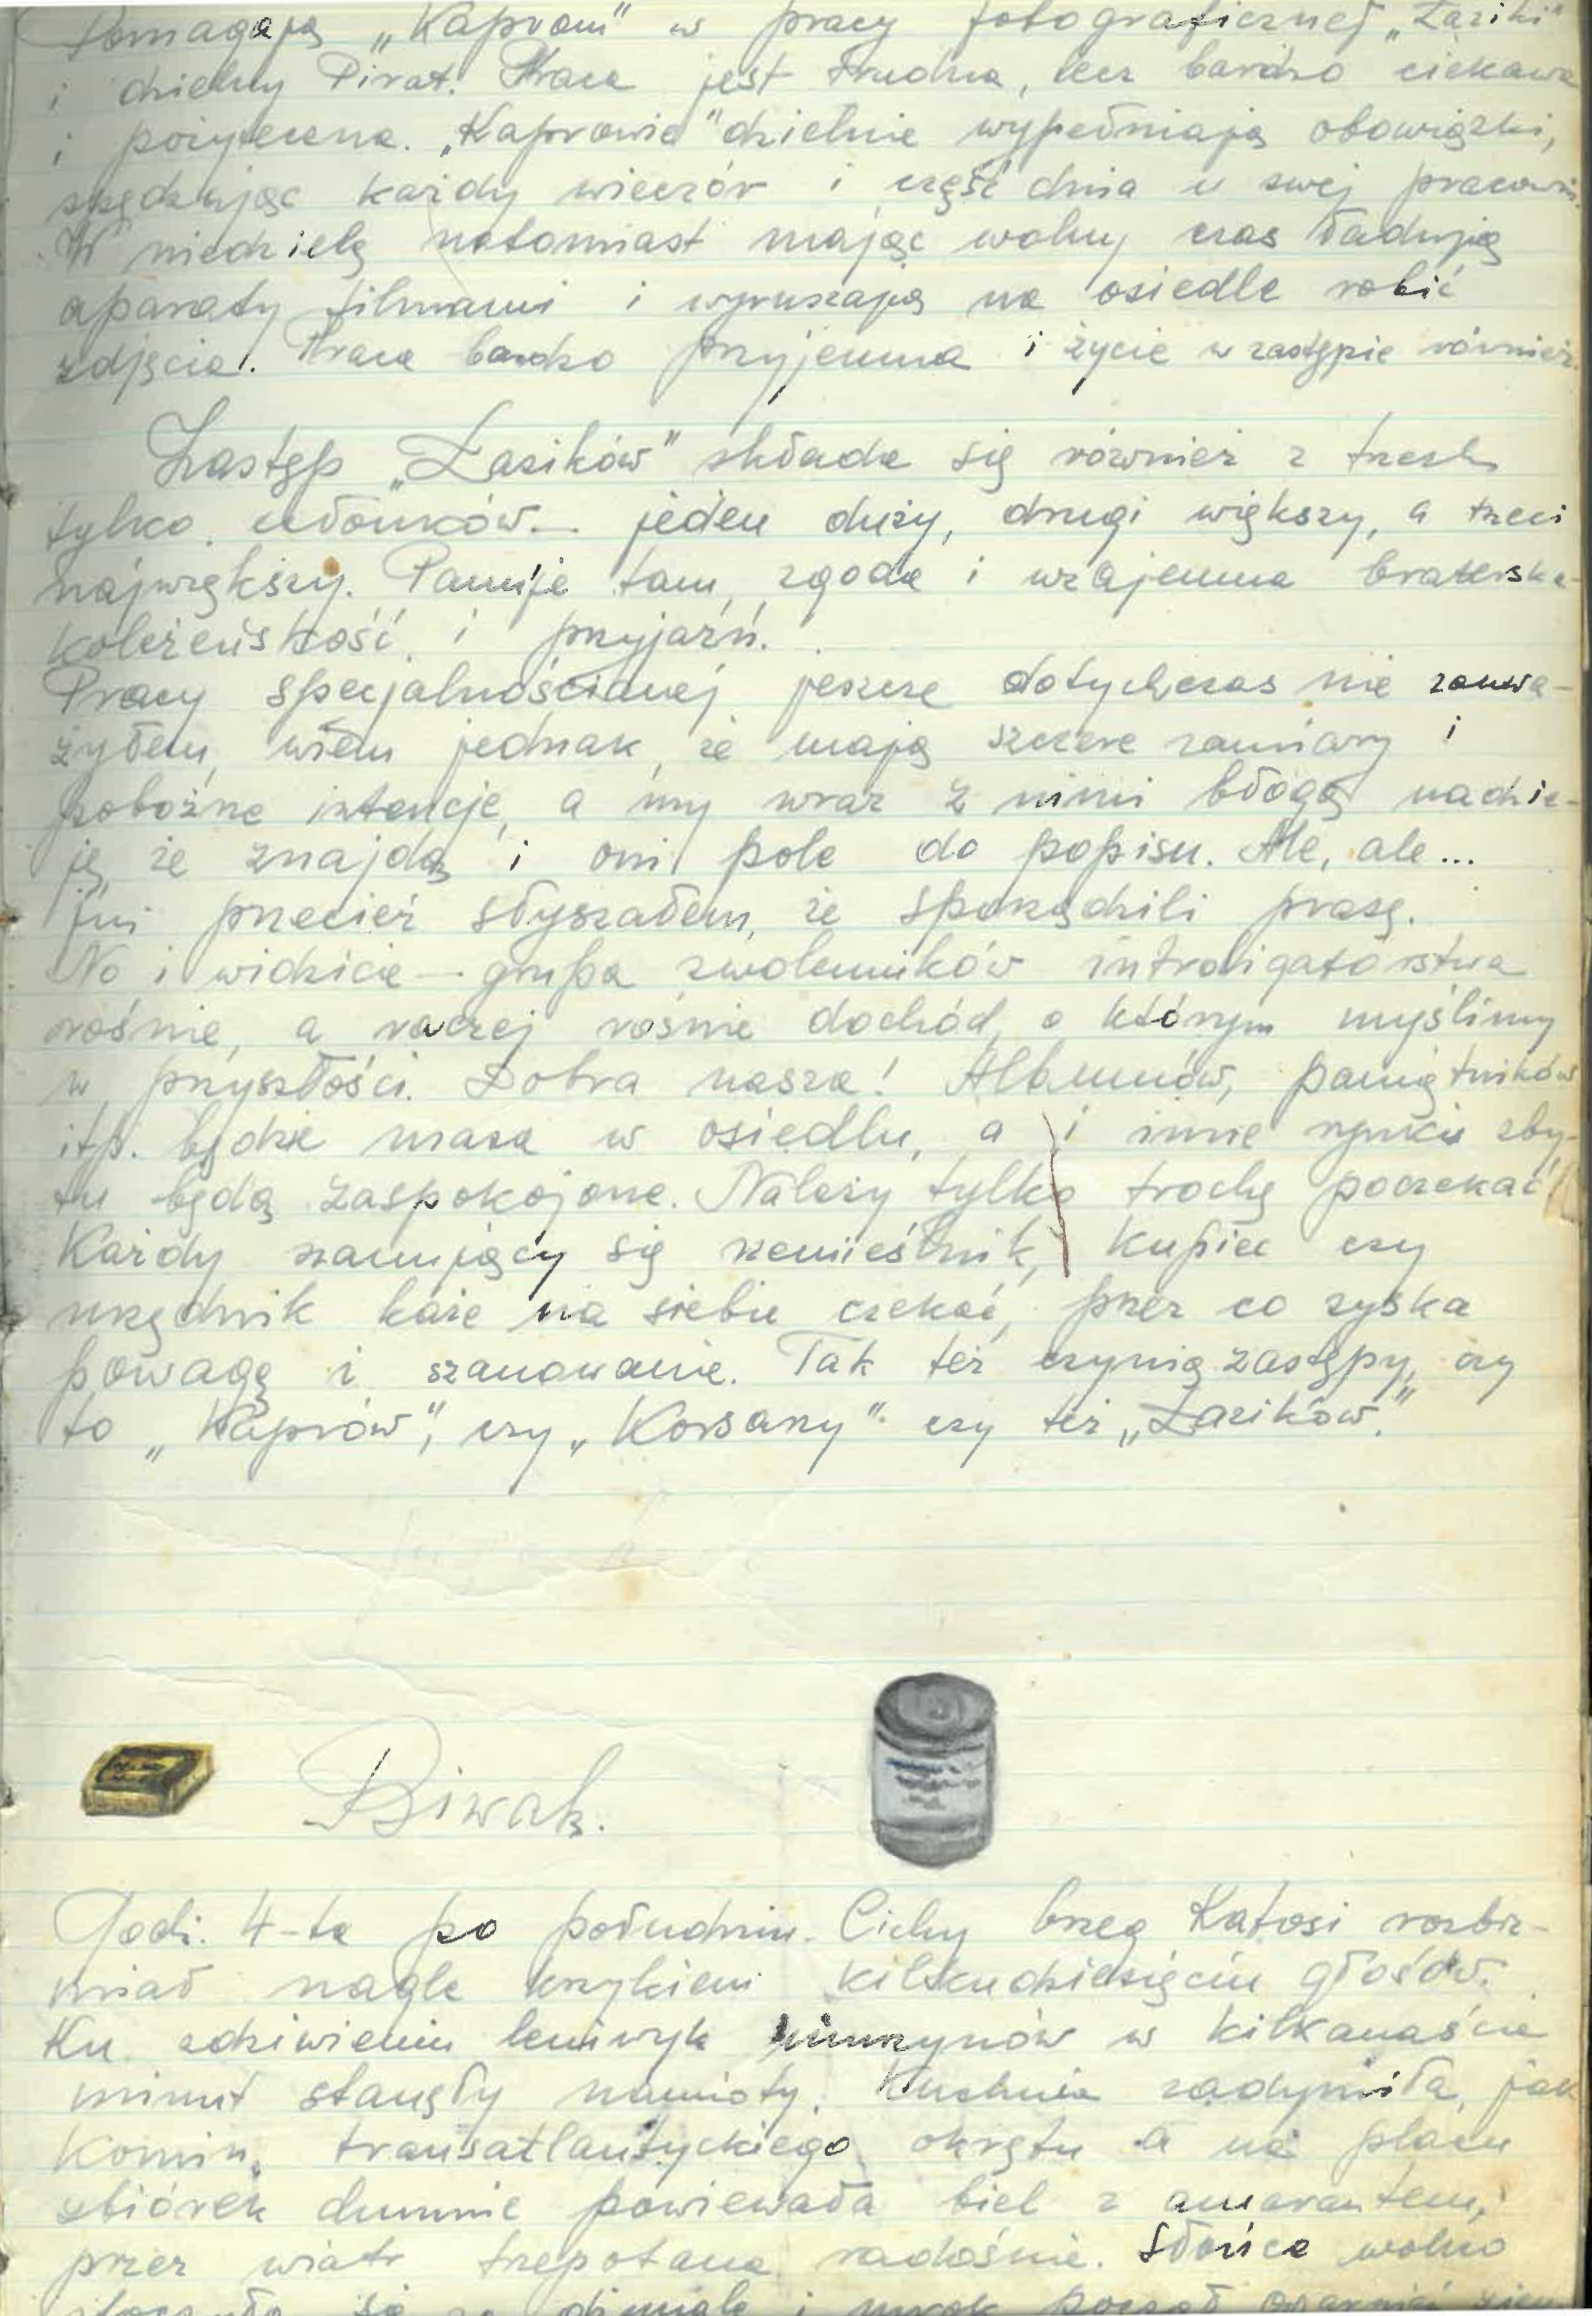 Pomagają „Kaprom" w pracy fotograficznej „Łaziki"
i dzielny Pirat. Praca jest trudna, lecz bardzo ciekawa
i pożyteczna. „Kaprowie" dzielnie wypełniają obowiązki,
spędzając każdy wieczór i część dnia w swej pracowni.
W niedzielę natomiast mając wolny czas ładują
aparaty filmami i wyruszają na osiedle robić
zdjęcia. Praca bardzo przyjemna i życie w zastępie również.
Zastęp „Łazików" składa się również z trzech
tylko członków – jeden duży, drugi większy, a trzeci
największy. Panuje tam zgoda i wzajemna braterska
koleżeńskość i przyjaźń.
Pracy specjalnościowej jeszcze dotychczas nie zauwa-
żyłem, wiem jednak, że mają szczere zamiary i
pobożne intencje, a my wraz z nimi błogą nadzie-
ję, że znajdą i oni pole do popisu. Ale, ale...
już przecież słyszałem, że sporządzili prasę.
No i widzicie – grupa zwolenników introligatorstwa
rośnie, a raczej rośnie dochód, o którym myślimy
w przyszłości. Dobra nasza! Albumów, pamiętników
itp. będzie masa w osiedlu, a i inne rynki zby-
tu będą zaspokojone. Należy tylko trochę poczekać!
Każdy szanujący się rzemieślnik, kupiec czy
urzędnik każe na siebie czekać, przez co zyska
powagę i szanowanie. Tak też czynią zastępy, czy
to „Kaprów", czy „Korsarzy" czy też „Łazików."
Biwak.
Godz. 4-ta po południu. Cichy brzeg Katosi rozbrz-
miał nagle krzykiem kilkudziesięciu głosów.
Ku zdziwieniu leniwych murzynów w kilkanaście
minut stanęły namioty. Kuchnia zadymiła, jak
komin transatlantyckiego okrętu a na placu
zbiórek dumnie powiewała biel z amarantem,
przez wiatr trzepotana radośnie. Słońce wolno
stoczyło się za dżunglę i mrok począł ogarniać